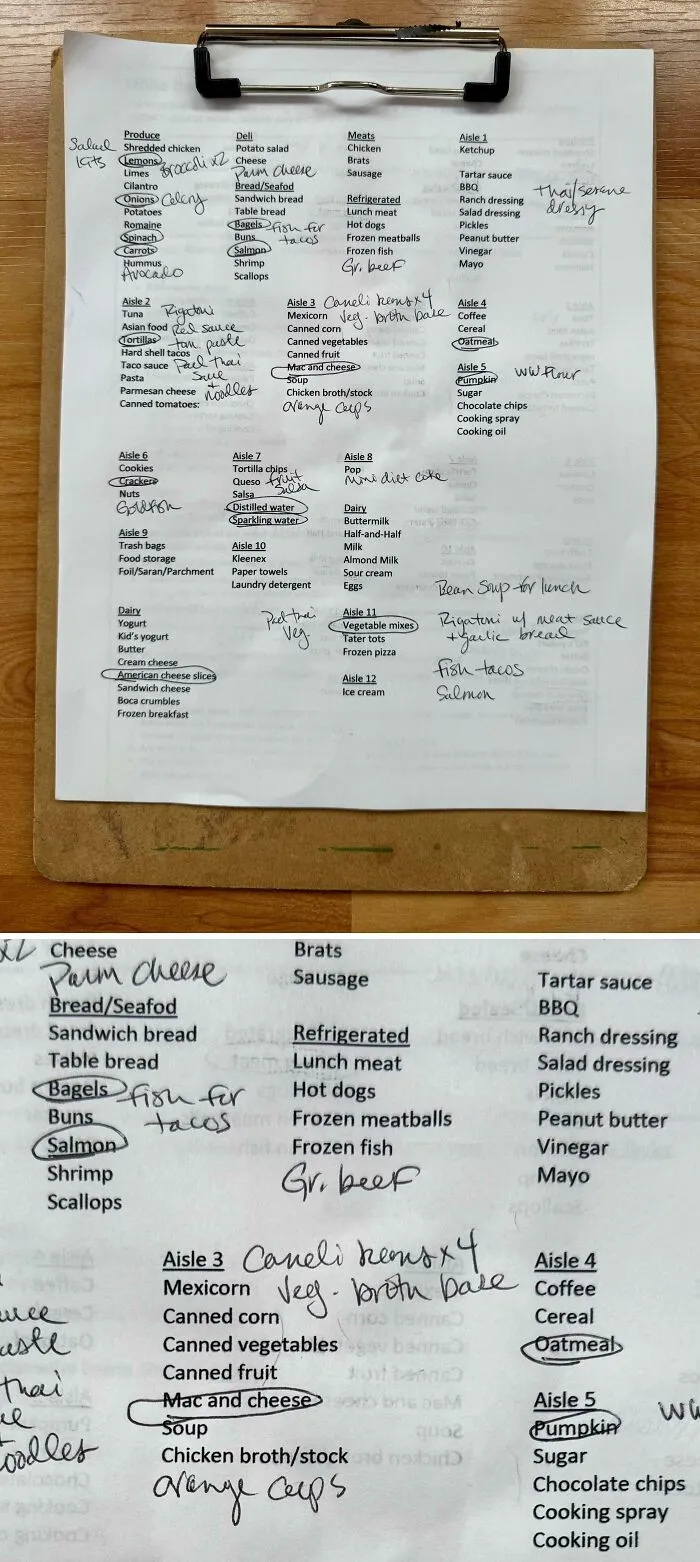 Produce
Salad
Kits
Shredded chicken
Lemons
Limes
Broccoli x2
Cilantro
Onions Celery
Potatoes
Romaine
Spinach
Carrots
Hummus
Avocado
Deli
Potato salad
Cheese
Parm cheese
Bread/Seafod
Sandwich bread
Table bread
Bagels fish for
Buns tacos
Salmon
Shrimp
Scallops
Meats
Chicken
Brats
Sausage
Refrigerated
Lunch meat
Hot dogs
Frozen meatballs
Frozen fish
Gr. beef
Aisle 1
Ketchup
Tartar sauce
BBQ
Ranch dressing
Salad dressing
Pickles
Peanut butter
Vinegar
Mayo
Thai/
Aisle 2
Tuna Rigatoni
Asian food Red sauce
Tortillas tom paste
Hard shell tacos
Taco sauce Pad thai
Pasta
Parmesan cheese + noodles
Canned tomatoes:
Aisle 3
x4
Mexicorn Veg. broth base
Canned corn
Canned vegetables
Canned fruit
Mac and cheese
Soup
Chicken broth/stock
orange cups
Aisle 4
Coffee
Cereal
Oatmeal
Aisle 5
Pumpkin WW Flour
Sugar
Chocolate chips
Cooking spray
Cooking oil
Aisle 6
Cookies
Crackers
Nuts
Goldfish
Aisle 9
Trash bags
Food storage
Foil/Saran/Parchment
Aisle 7
Tortilla chips
Queso fruit
Salsa salsa
Distilled water
Sparkling water
Aisle 10
Kleenex
Paper towels
Laundry detergent
Aisle 8
Pop
mini diet coke
Dairy
Buttermilk
Half-and-Half
Milk
Almond Milk
Sour cream
Eggs
Dairy
Yogurt
Kid's yogurt
Butter
Cream cheese
American cheese slices
Sandwich cheese
Boca crumbles
Frozen breakfast
Pad thai
Veg.
Aisle 11
Vegetable mixes
Tater tots
Frozen pizza
Aisle 12
Ice cream
Bean Soup for lunch
Rigatoni w/ meat sauce
+ garlic bread
fish tacos
Salmon
x2 Cheese
Parm cheese
Bread/Seafod
Sandwich bread
Table bread
Bagels fish for
Buns tacos
Salmon
Shrimp
Scallops
Brats
Sausage
Refrigerated
Lunch meat
Hot dogs
Frozen meatballs
Frozen fish
Gr. beef
Tartar sauce
BBQ
Ranch dressing
Salad dressing
Pickles
Peanut butter
Vinegar
Mayo
thai
Aisle 3
x4
Mexicorn Veg. broth base
Canned corn
Canned vegetables
Canned fruit
Mac and cheese
Soup
Chicken broth/stock
orange cups
Aisle 4
Coffee
Cereal
Oatmeal
Aisle 5
Pumpkin WW
Sugar
Chocolate chips
Cooking spray
Cooking oil